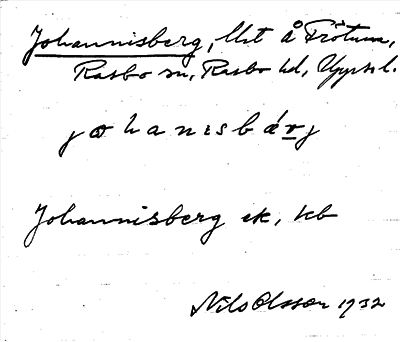 Johannisberg, lht å Frötuna,
Rasbo sn, Rasbo hd, Upps. l.
johanisbárj
Johannisberg ek, kb
Nils Olsson 1932